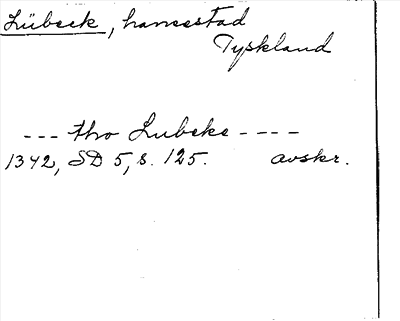 Lübeck, hansestad
Tyskland
--- tho Lubeke ----
1342, SD 5, s. 125. avskr.